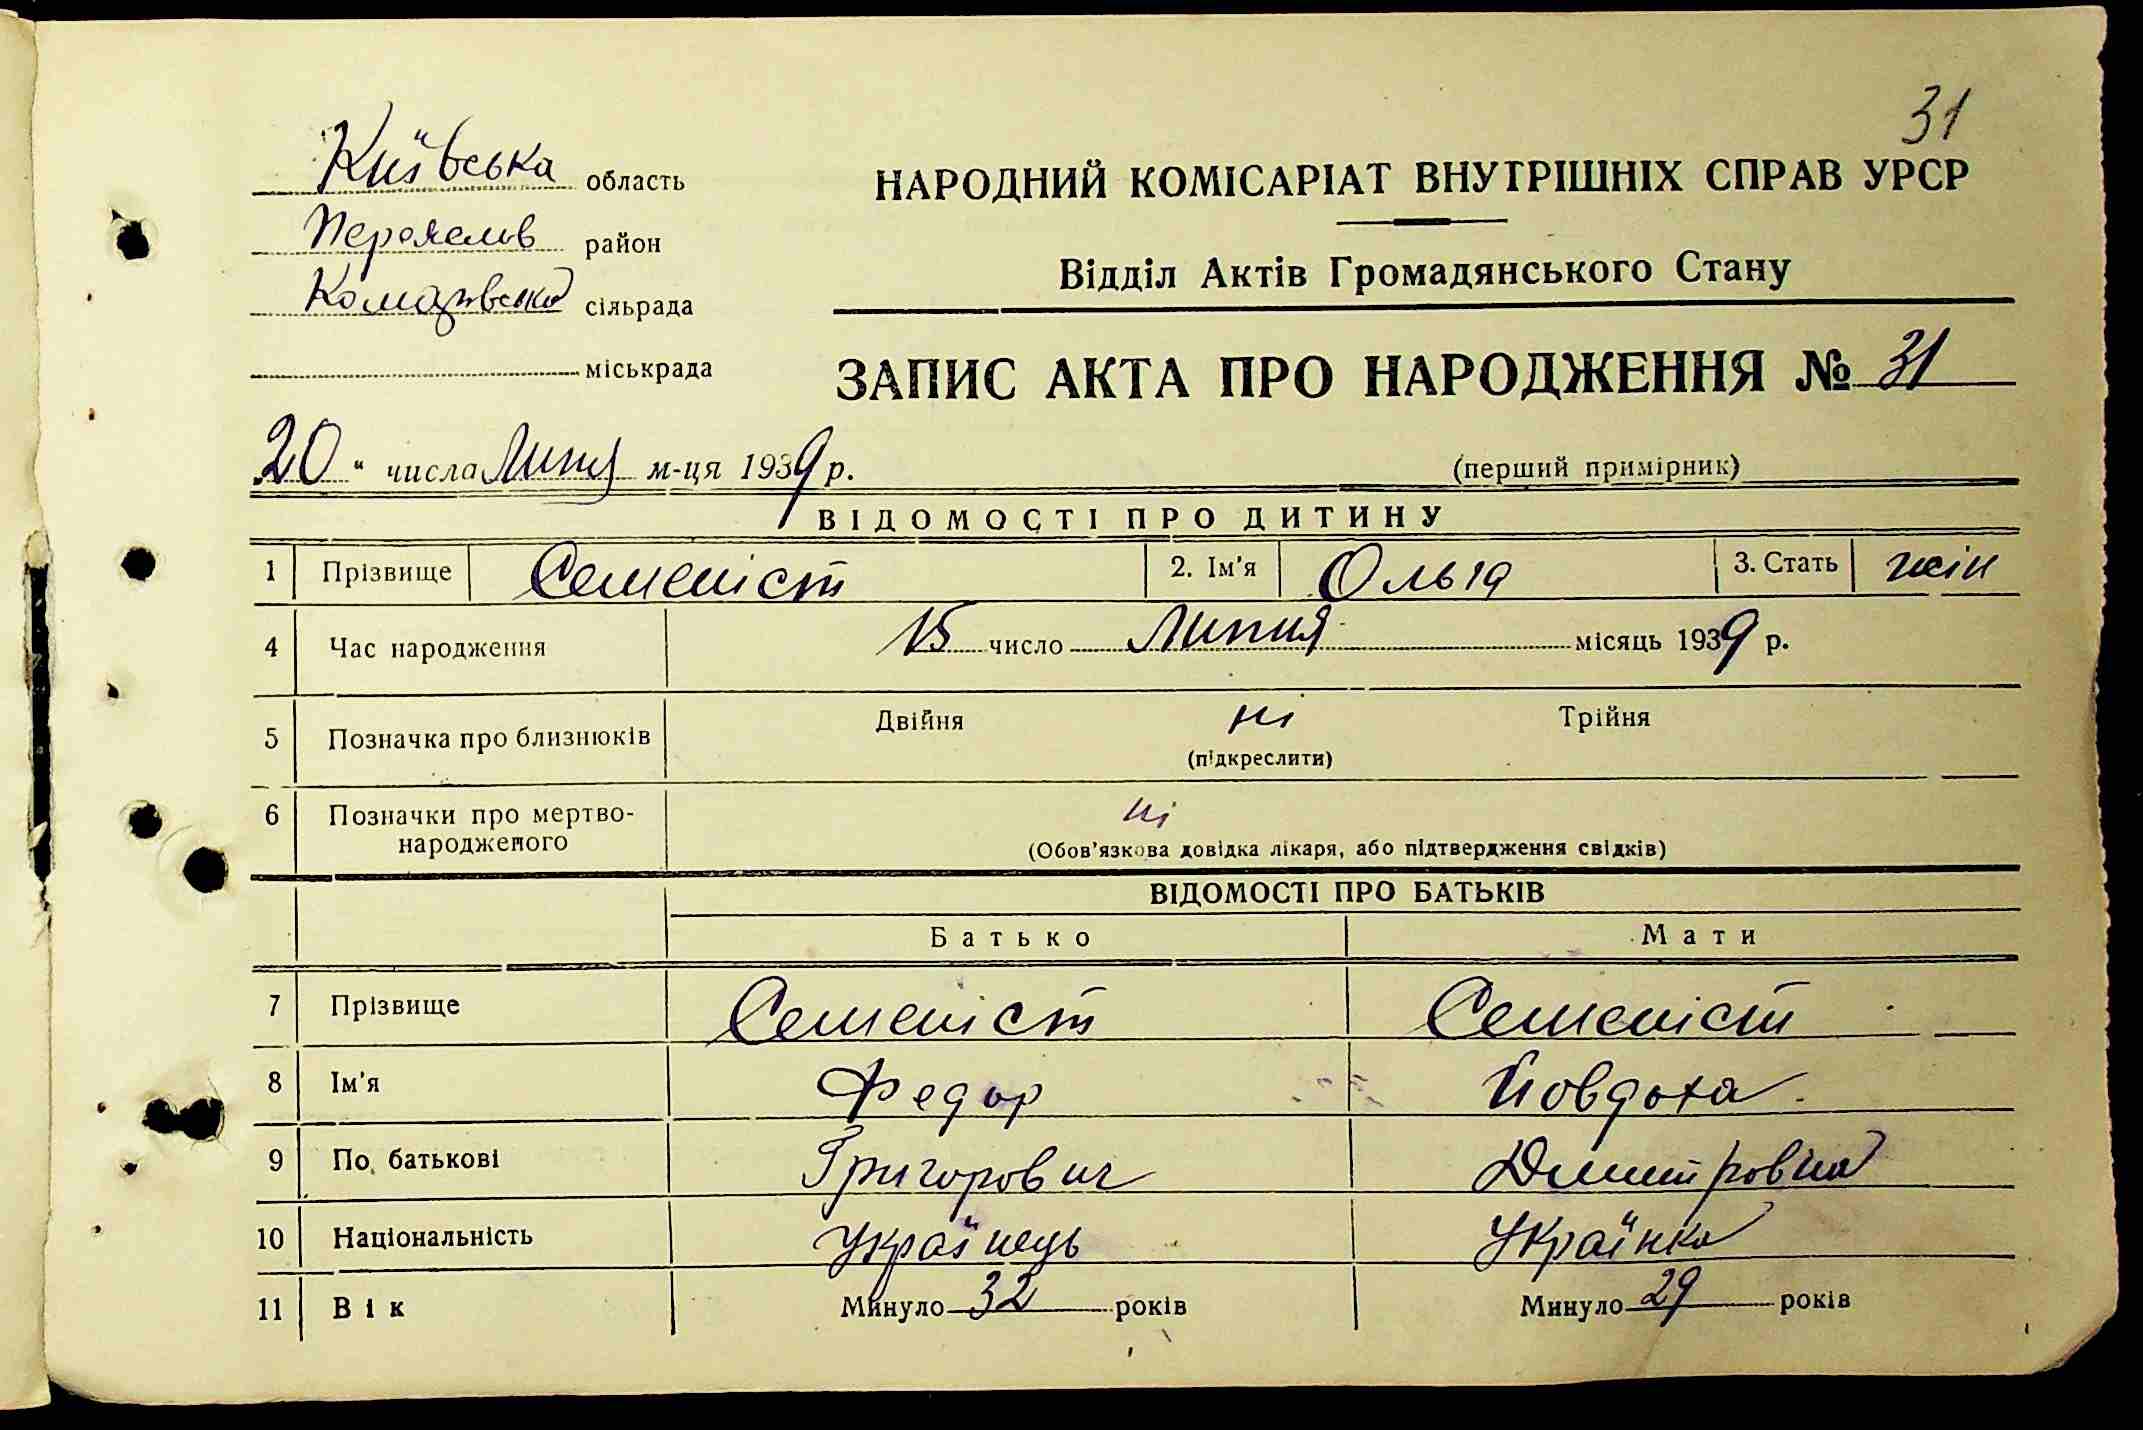 31
Київська область
НАРОДНИЙ КОМІСАРІАТ ВНУТРІШНІХ СПРАВ УРСР
район
Відділ Актів Громадянського Стану
сільрада
міськрада
ЗАПИС АКТА ПРО НАРОДЖЕННЯ № 31
20 " числа Липня м-ця 1939 р.
(перший примірник)
ВІДОМОСТІ ПРО ДИТИНУ
1 Прізвище Семеніст 2. Ім'я Ольга 3. Стать жін
4 Час народження 15 число Липня місяць 1939 р.
5 Позначка про близнюків Двійня ні Трійня
(підкреслити)
6 Позначки про мертво-
народженого
ні
(Обов'язкова довідка лікаря, або підтвердження свідків)
ВІДОМОСТІ ПРО БАТЬКІВ
Батько Мати
7 Прізвище Семеніст Семеніст
8 Ім'я Федор Йовдоха
9 По батькові Григорович Дмитровна
10 Національність Українець Українка
11 Вік Минуло 32 років Минуло 29 років